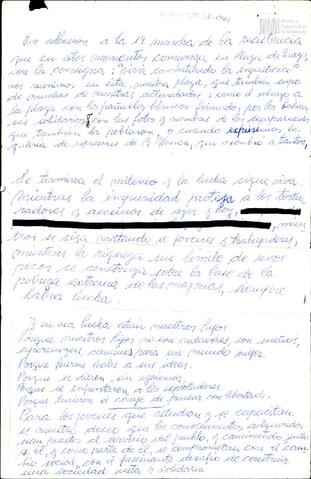 En adhesion a la 19 marcha de la resistencia
que en estos momentos comienza en Plaza de Mayo,
con la consigna:
nos reunimos en esta, nuestra plaza, que tambien supo
de muchas de nuestras actividades: como el abrazo a
la plaza con los pañuelos blancos firmados, por los
ser solidarios, con las fotos y nombres de los desaparecidos
que tambien la poblaron, o cuando expusimos la
galeria de represores de B. Blanca, que asombro a tantos,
Se termina el milenio y la lucha sigue viva.
Mientras la impunidad proteja a los tortu-
radores y asesinos de ayer y hoy,
mien-
tras se siga matando a jovenes y trabajadores,
mientras la riqueza sin limite de unos
pocos se construya sobre la base de la
pobreza extrema de las mayorias, siempre
habra lucha.
Y en esa lucha estan nuestros hijos
Porque nuestros hijos no son cadaveres, son sueños,
esperanzas, caminos para un mundo mejor.
Porque fueron leales a sus ideas.
Porque se dieron, sin egoismos
Porque se enfrentaron a los explotadores.
Porque tuvieron el coraje de pensar con libertad.
Para los jovenes que estudian y se capacitan
es nuestro deseo que los conocimientos adquiridos
sean puestos al servicio del pueblo, y caminando junto
a el, y como parte de el, se comprometan con el cam-
bio social, con el fascinante desafio de construir
una sociedad justa y solidaria